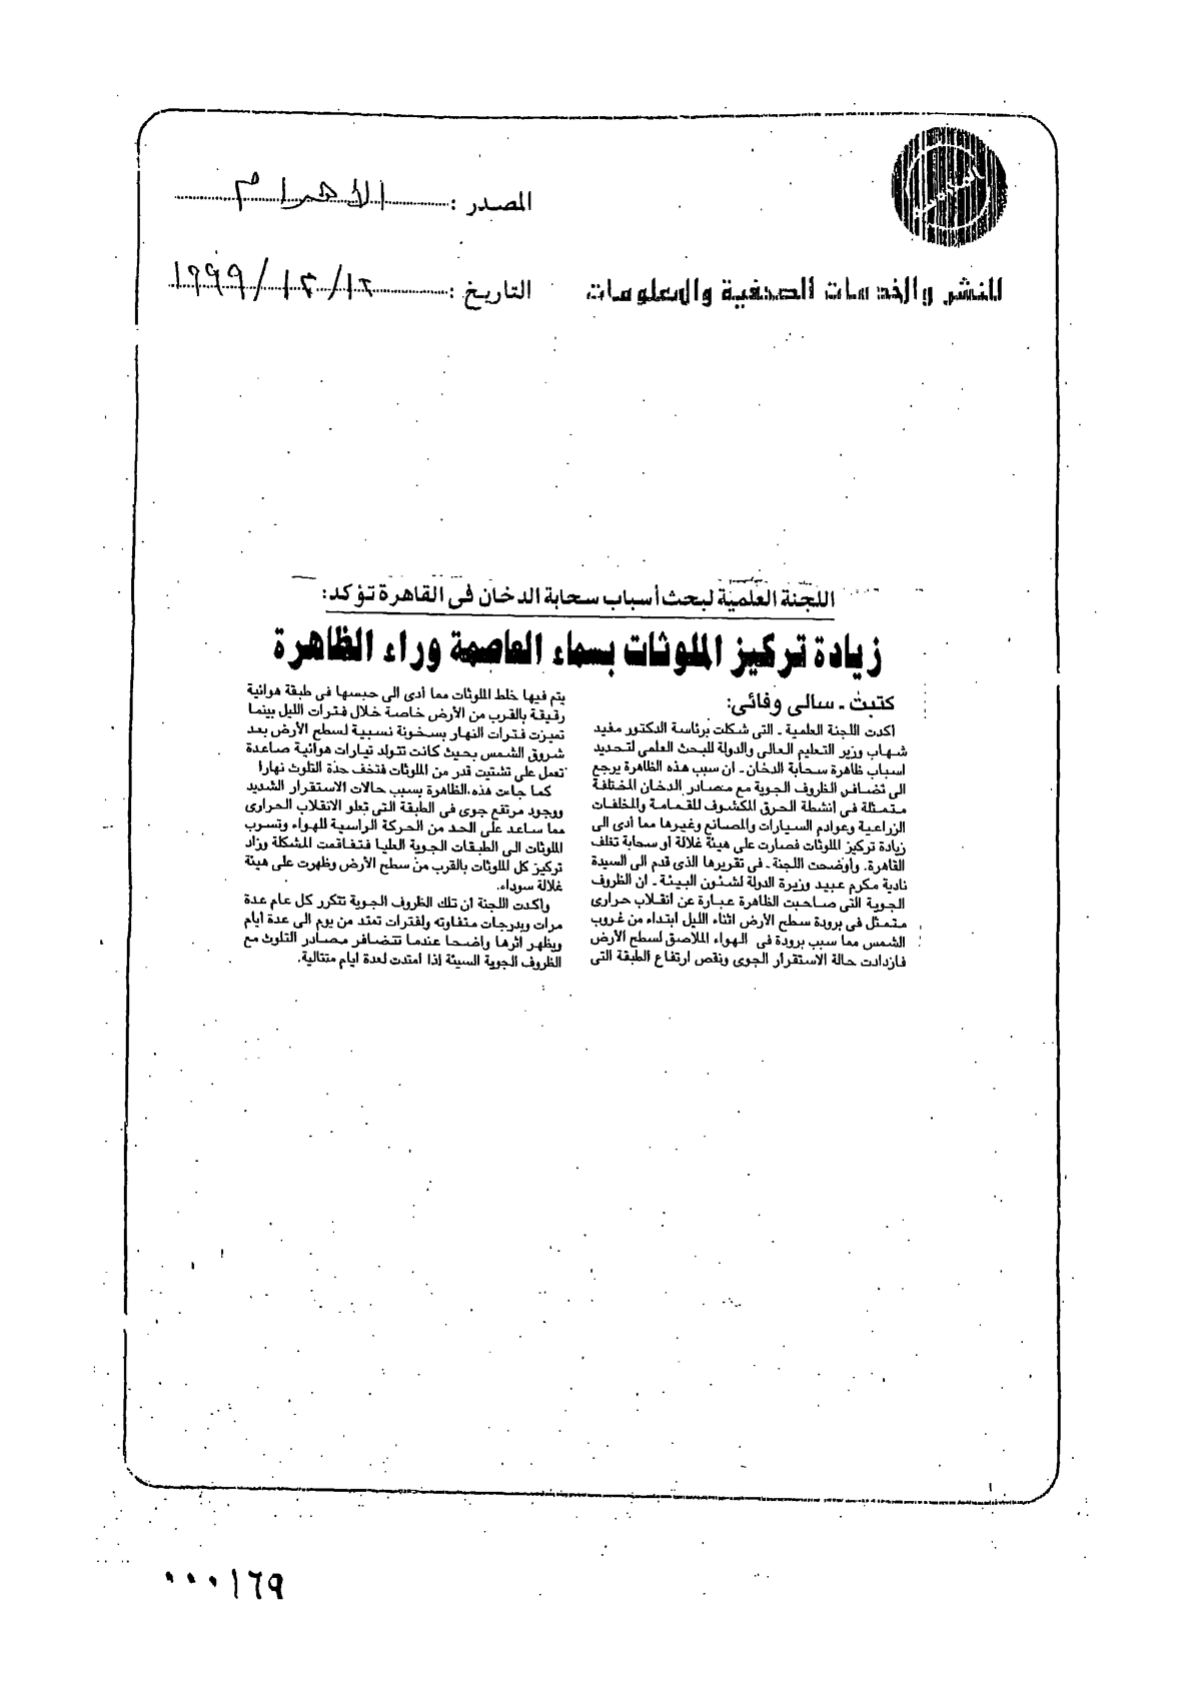 المصدر : الأهرام
للنشر والخدمات الصحفية والمعلومات
التاريخ : ١٢/١٢/١٩٩٩
اللجنة العلمية لبحث أسباب سحابة الدخان فى القاهرة تؤكد:
زيادة تركيز الملوثات بسماء العاصمة وراء الظاهرة
كتبت ـ سالى وفائى:
اكدت اللجنة العلمية ـ التى شكلت برئاسة الدكتور مفيد
شهاب وزير التعليم العالى والدولة للبحث العلمى لتحديد
اسباب ظاهرة سحابة الدخان ـ ان سبب هذه الظاهرة يرجع
الى تضافر الظروف الجوية مع مصادر الدخان المختلفة
متمثلة فى انشطة الحرق المكشوف للقمامة والمخلفات
الزراعية وعوادم السيارات والمصانع وغيرها مما أدى الى
زيادة تركيز الملوثات فصارت على هيئة غلالة أو سحابة تغلف
القاهرة. وأوضحت اللجنة ـ فى تقريرها الذى قدم الى السيدة
نادية مكرم عبيد وزيرة الدولة لشئون البيئة ـ ان الظروف
الجوية التى صاحبت الظاهرة عبارة عن انقلاب حرارى
متمثل فى برودة سطح الأرض اثناء الليل ابتداء من غروب
الشمس مما سبب برودة فى الهواء الملاصق لسطح الأرض
فازدادت حالة الاستقرار الجوى ونقص ارتفاع الطبقة التى
يتم فيها خلط الملوثات مما أدى الى حبسها فى طبقة هوائية
رقيقة بالقرب من الأرض خاصة خلال فترات الليل بينما
تميزت فترات النهار بسخونة نسبية لسطح الأرض بعد
شروق الشمس بحيث كانت تتولد تيارات هوائية صاعدة
تعمل على تشتيت قدر من الملوثات فتخف حدة التلوث نهارا
كما جاءت هذه الظاهرة بسبب حالات الاستقرار الشديد
ووجود مرتفع جوى فى الطبقة التى تعلو الانقلاب الحرارى
مما ساعد على الحد من الحركة الراسية للهواء وتسرب
الملوثات الى الطبقات الجوية العليا فتفاقمت المشكلة وزاد
تركيز كل الملوثات بالقرب من سطح الأرض وظهرت على هيئة
غلالة سوداء.
وأكدت اللجنة أن تلك الظروف الجوية تتكرر كل عام عدة
مرات وبدرجات متفاوته ولفترات تمتد من يوم الى عدة أيام
ويظهر اثرها واضحا عندما تتضافر مصادر التلوث مع
الظروف الجوية السيئة إذا أمتدت لعدة ايام متتالية.
٠٠٠١٦٩